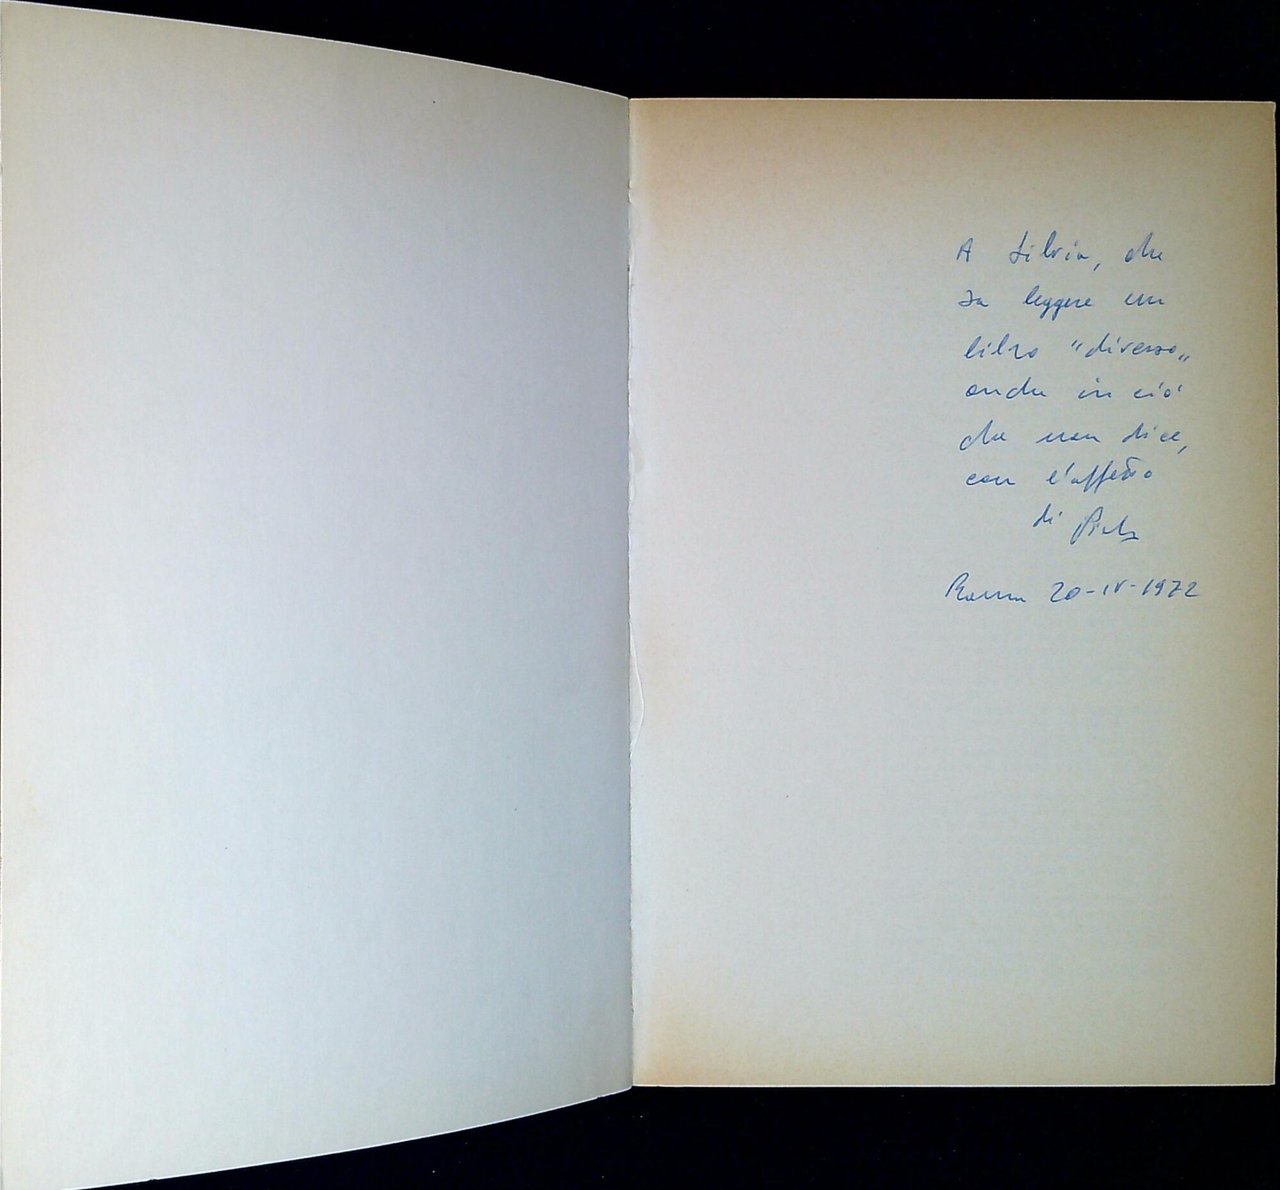 A Silvia, che
sa leggere un
libro "diverso„
anche in ciò
che non dice,
con l'affetto
di
Roma 20-IV-1972